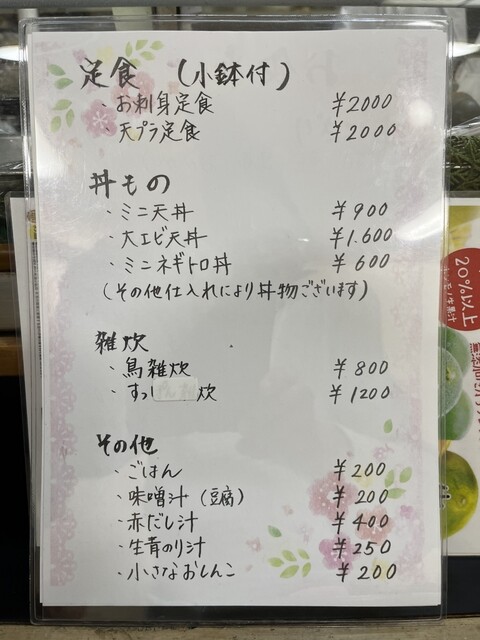 定食 (小鉢付)
・お刺身定食 ¥2000
・天プラ定食 ¥2000
丼もの
・ミニ天丼 ¥900
・大エビ天丼 ¥1.600
・ミニネギトロ丼 ¥600
(その他仕入れにより丼物ございます)
雑炊
・鳥雑炊 ¥800
・すっ 炊 ¥1200
その他
・ごはん ¥200
・味噌汁 (豆腐) ¥200
・赤だし汁 ¥400
・生青のり汁 ¥250
・小さなおしんこ ¥200
20%以上